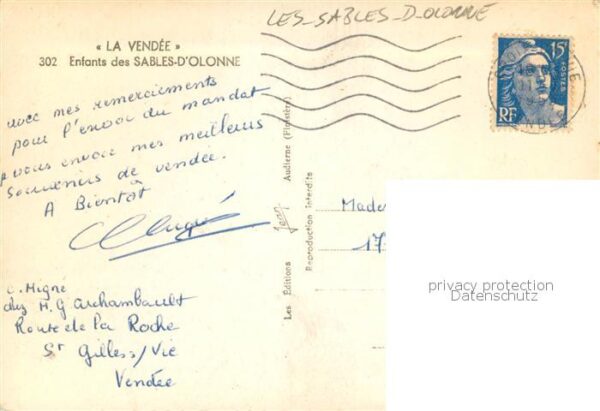 LES_SABLES_D_OLONNE
« LA VENDÉE »
302 Enfants des SABLES-D'OLONNE
avec mes remerciements
pour l'envoi du mandat
vous envoie mes meilleurs
souvenirs de vendée.
A Bientôt
C. Migné
chez M. G Archambault
Route de la Roche
St Gilles s/Vie
Vendée
Les Éditions Jean Audierne (Finistère)
Reproduction Interdite
15F
POSTES
RF
Made
17
privacy protection
Datenschutz